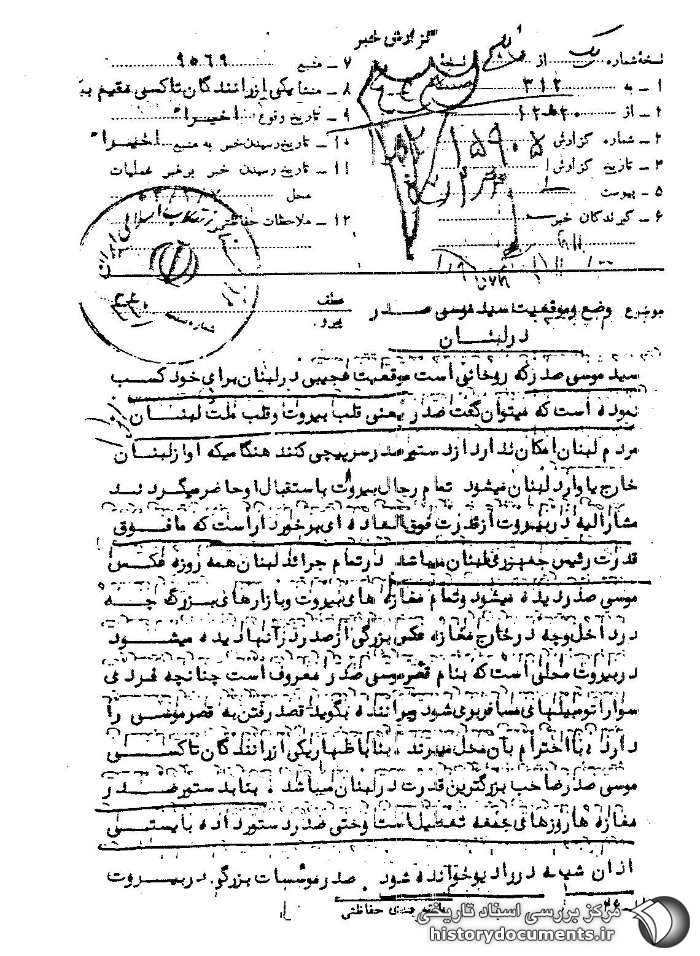 گزارش خبر
نسخه شماره یک از نسخه
۱ ـ به ۳۱۲
۲ ـ از ۱۲ه۲۰
۳ ـ شماره گزارش ۱۵۹۰۵
۴ ـ تاریخ گزارش
۵ ـ پیوست
۶ ـ گیرندگان خبر
۷ ـ منبع ۹۵۶۹
۸ ـ منشا یکی از رانندگان تاکسی مقیم
۹ ـ تاریخ وقوع اخیرا
۱۰ ـ تاریخ رسیدن خبر به منبع اخیرا
۱۱ ـ تاریخ رسیدن خبر به رهبر عملیات
محل
۱۲ ـ ملاحظات حفاظتی
موضوع وضع و موقعیت سید موسی صدر
در لبنان
عطف
پیرو
سید موسی صدر که روحانی است موقعیت عجیبی در لبنان برای خود کسب
نموده است که میتوان گفت صدر یعنی قلب بیروت و قلب ملت لبنان
مردم لبنان امکان ندارد از دستور صدر سرپیچی کنند هنگامیکه او از لبنان
خارج یا وارد لبنان میشود تمام رجال بیروت باستقبال او حاضر میگردند
مشارالیه در بیروت از قدرت فوق العاده ای برخوردار است که مافوق
قدرت رئیس جمهوری لبنان میباشد در تمام جرائد لبنان همه روزه عکس
موسی صدر دیده میشود و تمام مغازه های بیروت و بازارهای بزرگ چه
در داخل و چه در خارج مغازه عکس بزرگی از صدر در آنها دیده میشود
در بیروت محلی است که بنام قصر موسی صدر معروف است چنانچه فردی
سوار اتومبیلهای مسافربری شود و براننده بگوید قصد رفتن به قصر موسی را
دارد با احترام بآن محل میبرند بنا باظهار یکی از رانندگان تاکسی
موسی صدر صاحب بزرگترین قدرت در لبنان میباشد بنا بدستور صدر
مغازه ها روزهای جمعه تعطیل است و حتی صدر دستور داده بایستی
اذان شیعه در رادیو خوانده شود صدر موسسات بزرگی در بیروت
حفاظتی
مرکز بررسی اسناد تاریخی
historydocuments.ir